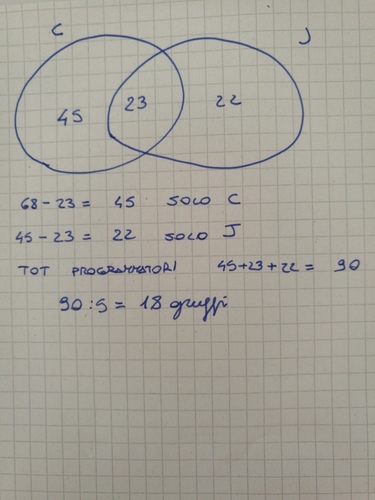 C J
45 23 22
68 - 23 = 45 SOLO C
45 - 23 = 22 SOLO J
TOT PROGRAMMATORI 45+23+22 = 90
90 : 5 = 18 gruppi